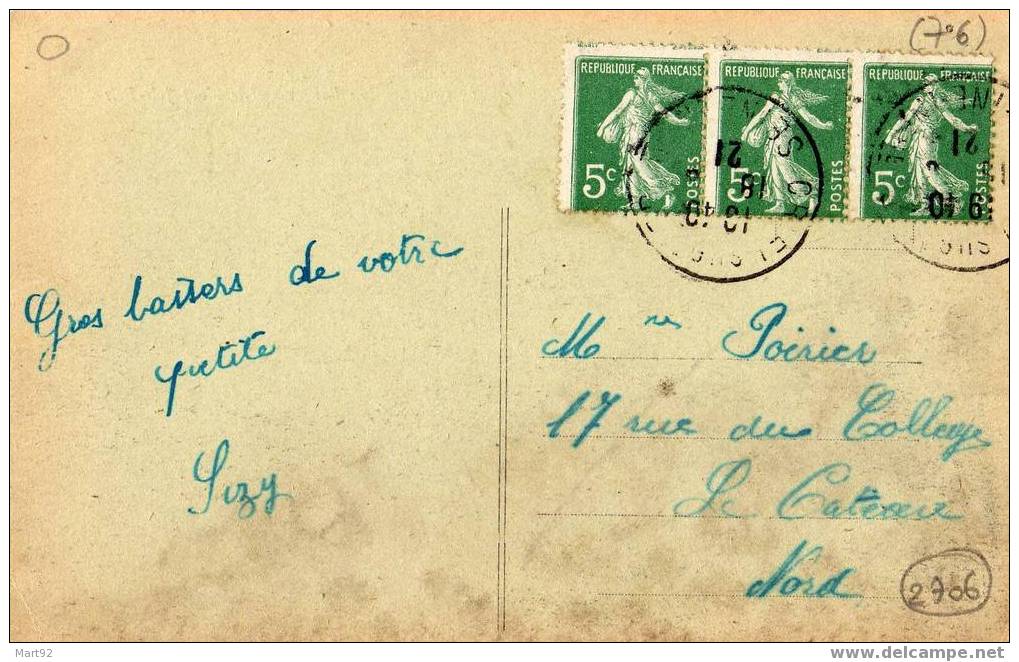 (706)
REPUBLIQUE FRANÇAISE REPUBLIQUE FRANÇAISE REPUBLIQUE FRANÇAISE
5c POSTES 5c POSTES 5c POSTES
21 21
18
18 40 9 40
Gros baisers de votre
petite
Suzy
Mme Poirier
17 rue du College
Le Cateau
Nord
2706
Mart92
www.delcampe.net